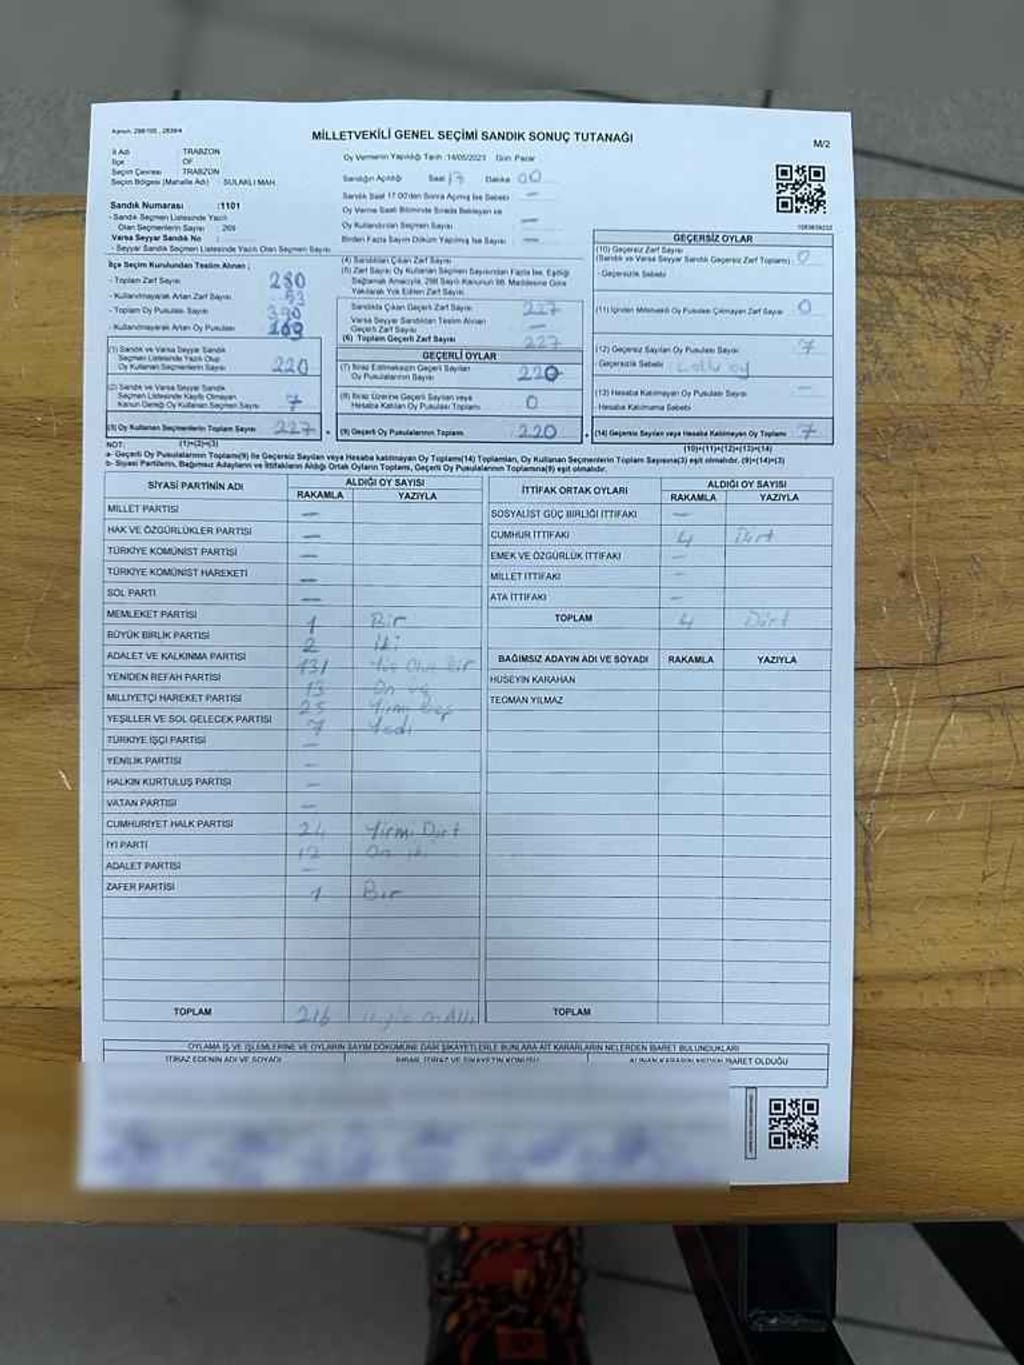 Kanun: 298/105 , 2839/4
MİLLETVEKİLİ GENEL SEÇİMİ SANDIK SONUÇ TUTANAĞI
M/2
İl Adı TRABZON
İlçe OF
Seçim Çevresi TRABZON
Seçim Bölgesi (Mahalle Adı) : SULAKLI MAH.
Oy Vermenin Yapıldığı Tarih :14/05/2023 Gün: Pazar
Sandığın Açıldığı Saat 17 Dakika 00
Sandık Saat 17:00'den Sonra Açılmış İse Sebebi —
Oy Verme Saati Bitiminde Sırada Bekleyen ve
Oy Kullandırılan Seçmen Sayısı —
Birden Fazla Sayım Döküm Yapılmış İse Sayısı —
Sandık Numarası :1101
- Sandık Seçmen Listesinde Yazılı
Olan Seçmenlerin Sayısı : 269
Varsa Seyyar Sandık No :
- Seyyar Sandık Seçmen Listesinde Yazılı Olan Seçmen Sayısı
İlçe Seçim Kurulundan Teslim Alınan ;
- Toplam Zarf Sayısı 280
- Kullanılmayarak Artan Zarf Sayısı 53
- Toplam Oy Pusulası Sayısı
- Kullanılmayarak Artan Oy Pusulası
(1) Sandık ve Varsa Seyyar Sandık
Seçmen Listesinde Yazılı Olup
Oy Kullanan Seçmenlerin Sayısı 220
(2) Sandık ve Varsa Seyyar Sandık
Seçmen Listesinde Kayıtlı Olmayan
Kanun Gereği Oy Kullanan Seçmen Sayısı 7
(3) Oy Kullanan Seçmenlerin Toplam Sayısı 227
(1)+(2)=(3)
(4) Sandıktan Çıkan Zarf Sayısı
(5) Zarf Sayısı Oy Kullanan Seçmen Sayısından Fazla İse, Eşitliği
Sağlamak Amacıyla, 298 Sayılı Kanunun 98. Maddesine Göre
Yakılarak Yok Edilen Zarf Sayısı
Sandıkta Çıkan Geçerli Zarf Sayısı 227
Varsa Seyyar Sandıktan Teslim Alınan
Geçerli Zarf Sayısı —
(6) Toplam Geçerli Zarf Sayısı 227
GEÇERLİ OYLAR
(7) İtiraz Edilmeksizin Geçerli Sayılan
Oy Pusulalarının Sayısı 220
(8) İtiraz Üzerine Geçerli Sayılan veya
Hesaba Katılan Oy Pusulası Toplamı 0
(9) Geçerli Oy Pusulalarının Toplamı 220
GEÇERSİZ OYLAR
(10) Geçersiz Zarf Sayısı
(Sandık ve Varsa Seyyar Sandık Geçersiz Zarf Toplamı) : 0
- Geçersizlik Sebebi
(11) İçinden Milletvekili Oy Pusulası Çıkmayan Zarf Sayısı 0
(12) Geçersiz Sayılan Oy Pusulası Sayısı 7
- Geçersizlik Sebebi
(13) Hesaba Katılmayan Oy Pusulası Sayısı —
- Hesaba Katılmama Sebebi
(14) Geçersiz Sayılan veya Hesaba Katılmayan Oy Toplamı 7
(10)+(11)+(12)+(13)=(14)
NOT:
a- Geçerli Oy Pusulalarının Toplamı(9) İle Geçersiz Sayılan veya Hesaba Katılmayan Oy Toplamı(14) Toplamları, Oy Kullanan Seçmenlerin Toplam Sayısına(3) eşit olmalıdır. (9)+(14)=(3)
b- Siyasi Partilerin, Bağımsız Adayların ve İttifakların Aldığı Ortak Oyların Toplamı, Geçerli Oy Pusulalarının Toplamına(9) eşit olmalıdır.
SİYASİ PARTİNİN ADI ALDIĞI OY SAYISI
RAKAMLA YAZIYLA
MİLLET PARTİSİ —
HAK VE ÖZGÜRLÜKLER PARTİSİ —
TÜRKİYE KOMÜNİST PARTİSİ —
TÜRKİYE KOMÜNİST HAREKETİ —
SOL PARTİ —
MEMLEKET PARTİSİ 1 Bir
BÜYÜK BİRLİK PARTİSİ 2 İki
ADALET VE KALKINMA PARTİSİ 131 Yüz Otuz Bir
YENİDEN REFAH PARTİSİ 13 On üç
MİLLİYETÇİ HAREKET PARTİSİ 25 Yirmi Beş
YEŞİLLER VE SOL GELECEK PARTİSİ 7 Yedi
TÜRKİYE İŞÇİ PARTİSİ —
YENİLİK PARTİSİ —
HALKIN KURTULUŞ PARTİSİ —
VATAN PARTİSİ —
CUMHURİYET HALK PARTİSİ 24 Yirmi Dört
İYİ PARTİ 12 On iki
ADALET PARTİSİ —
ZAFER PARTİSİ 1 Bir
TOPLAM 216 On Altı
İTTİFAK ORTAK OYLARI ALDIĞI OY SAYISI
RAKAMLA YAZIYLA
SOSYALİST GÜÇ BİRLİĞİ İTTİFAKI —
CUMHUR İTTİFAKI 4 Dört
EMEK VE ÖZGÜRLÜK İTTİFAKI —
MİLLET İTTİFAKI —
ATA İTTİFAKI —
TOPLAM 4 Dört
BAĞIMSIZ ADAYIN ADI VE SOYADI RAKAMLA YAZIYLA
HÜSEYİN KARAHAN
TEOMAN YILMAZ
TOPLAM
OYLAMA İŞ VE İŞLEMLERİNE VE OYLARIN SAYIM DÖKÜMÜNE DAİR ŞİKAYETLERLE BUNLARA AİT KARARLARIN NELERDEN İBARET BULUNDUKLARI
İTİRAZ EDENİN ADI VE SOYADI İHBAR, İTİRAZ VE ŞİKAYETİN KONUSU ALINAN KARARIN NEDEN İBARET OLDUĞU